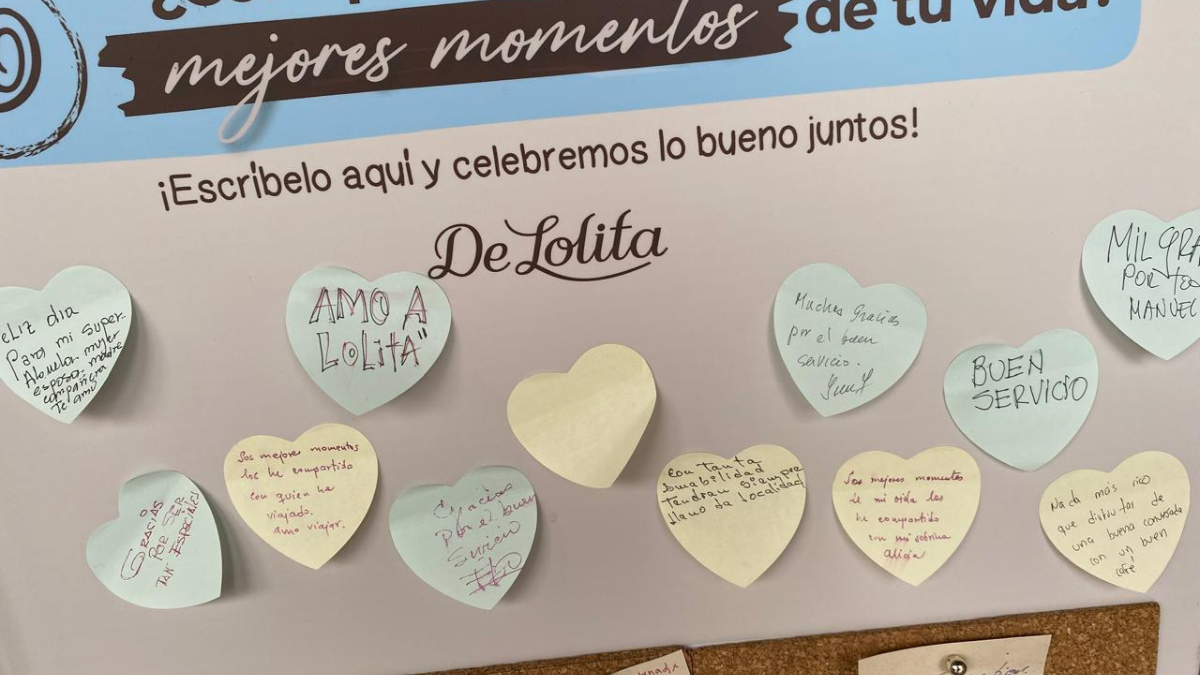 mejores momentos de tu vida?
¡Escríbelo aquí y celebremos lo bueno juntos!
De Lolita
eliz dia
Para mi super.
Abuela. mujer
esposa. madre
compañera
Te amo
AMO A
LOLITA"
Muchas Gracias
por el buen
servicio.
MIL GRA
POR TO
MANUEL
BUEN
SERVICIO
GRACIAS
POR SER
TAN ESPECIALES
Los mejores momentos
los he compartido
con quien he
viajado.
amo viajar.
Gracias
Por el buen
Con tanta
amabilidad
tendran siempre
lleno la localidad
Los mejores momentos
de mi vida los
he compartido
con mi sobrina
Alicia
Nada más rico
que disfrutar de
una buena conversada
con un buen
café!